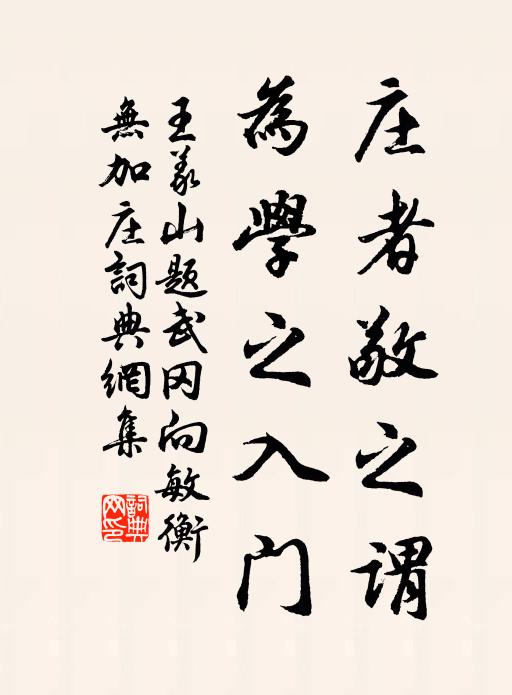 庄者敬之谓
為學之入门
王義山题武冈向敏衡
無加庄詞典網集
詞典网印